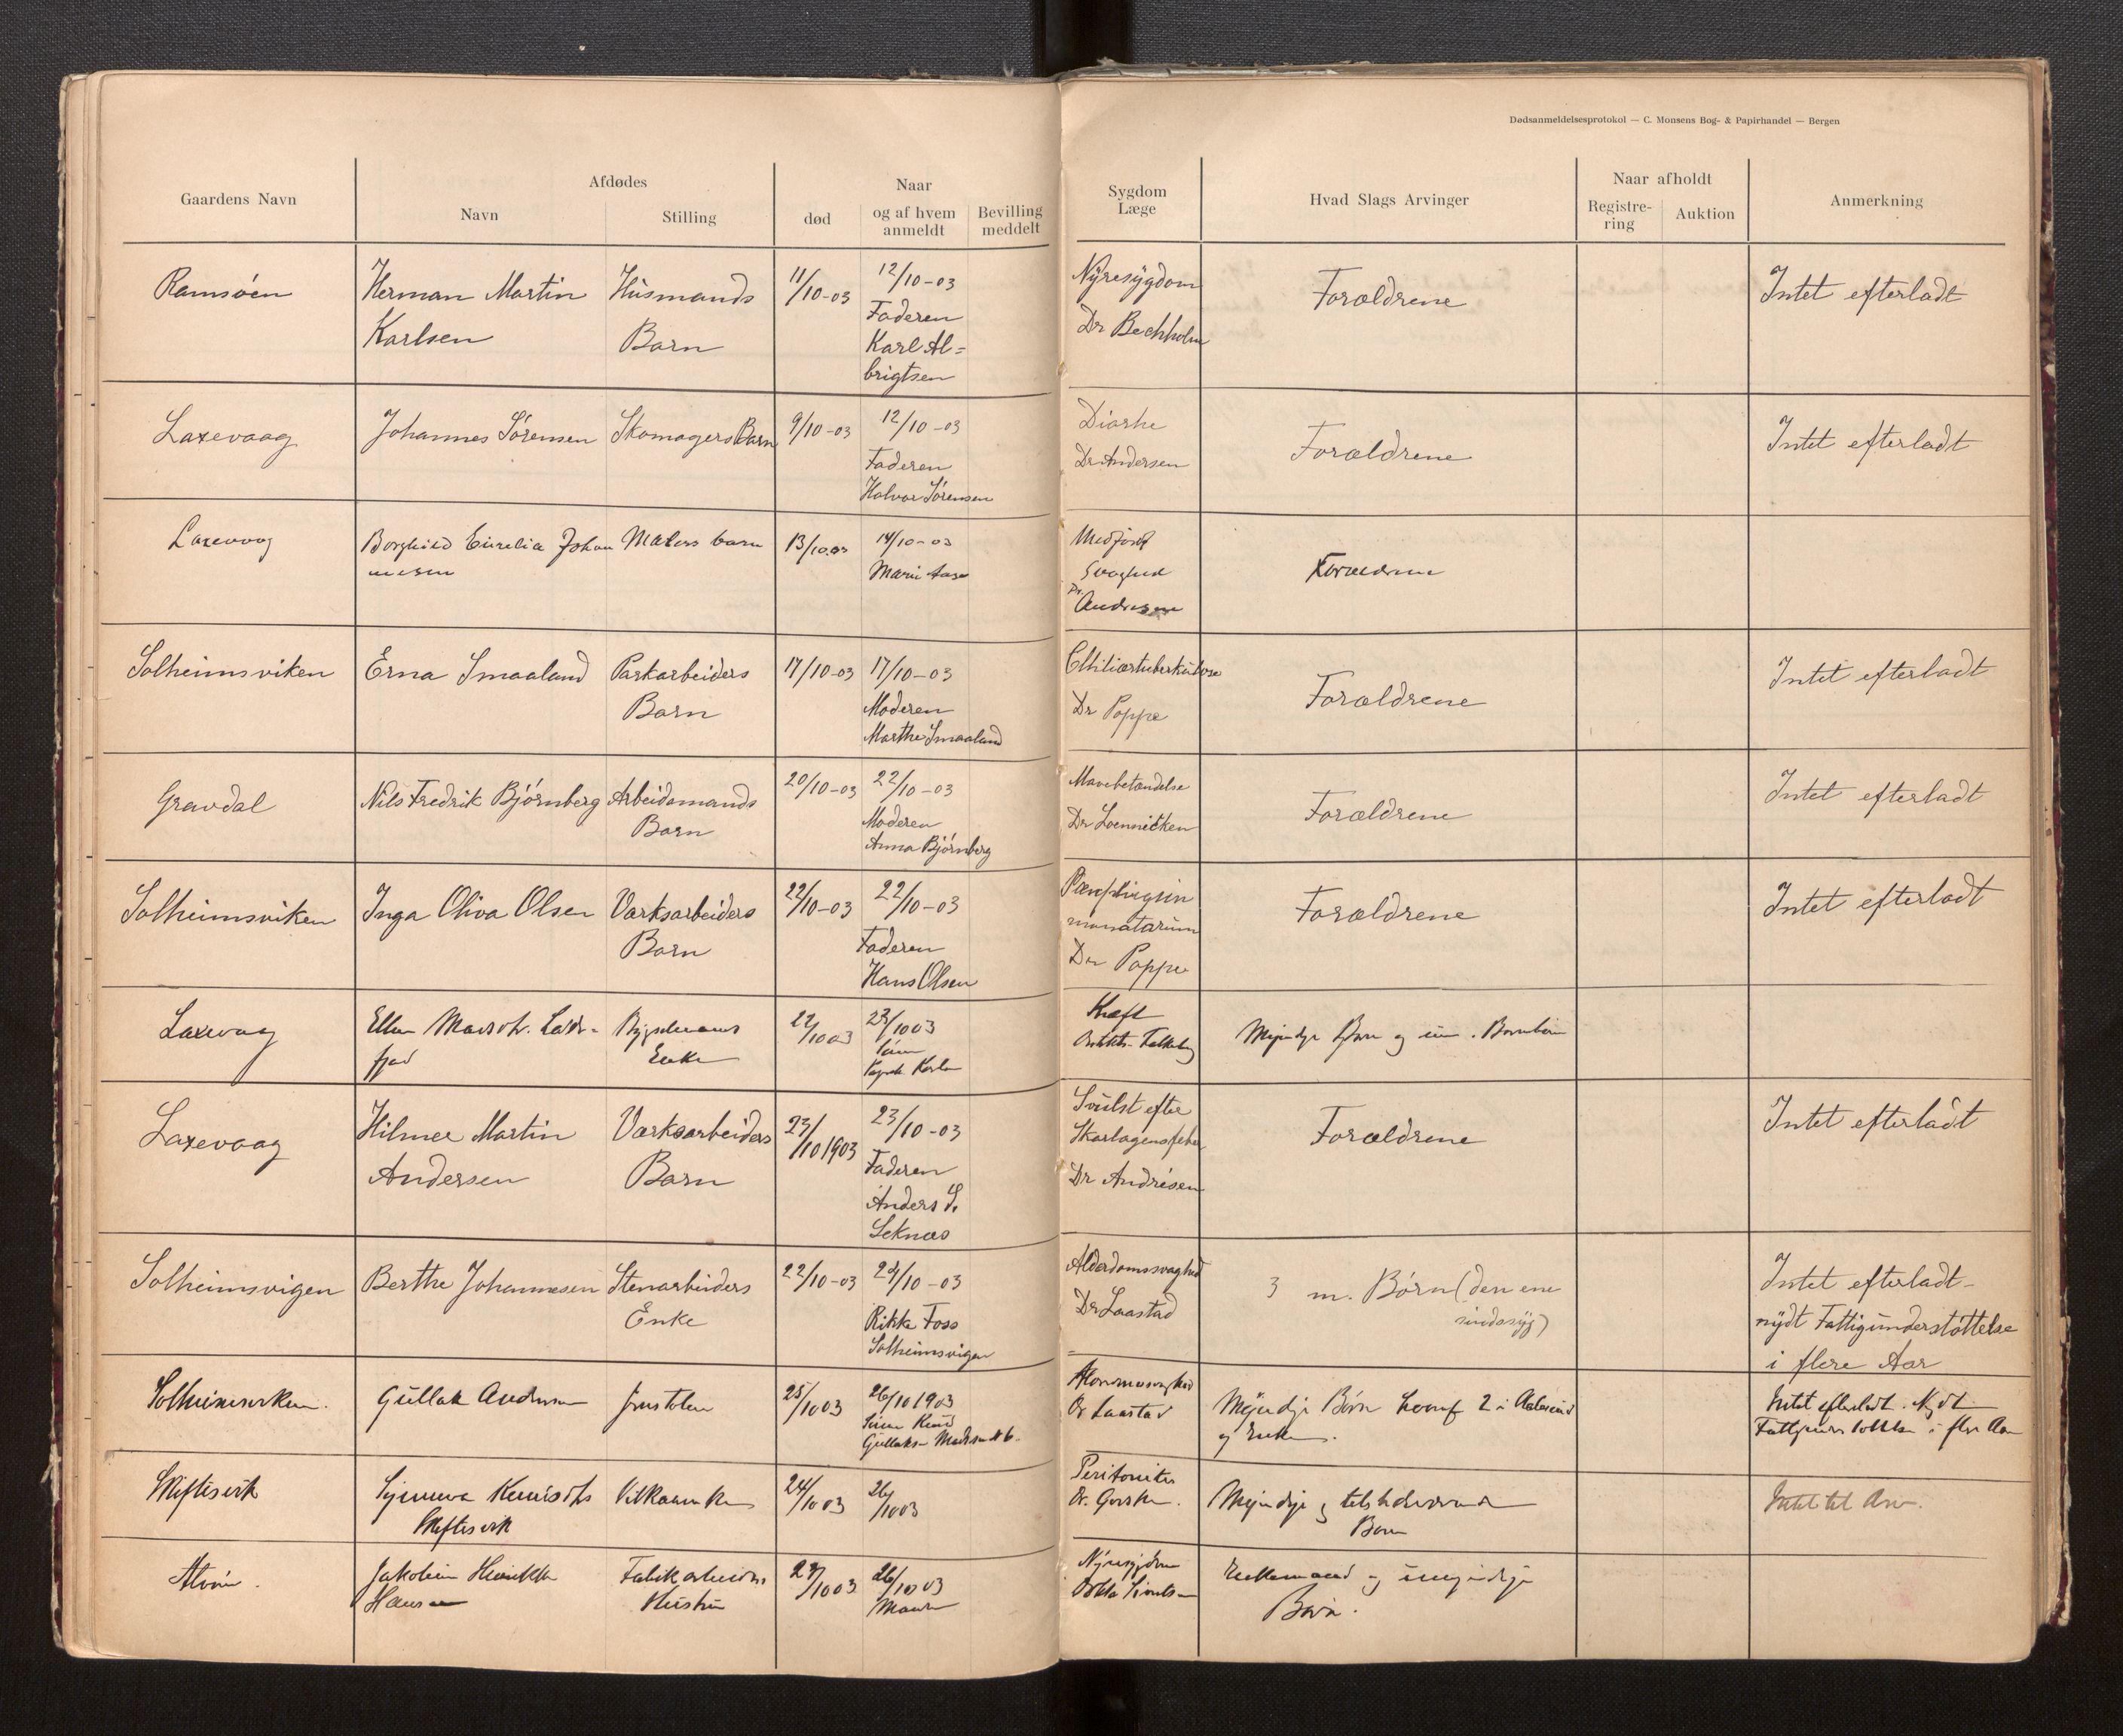 Dødsanmeldelsesprotokol — C. Monsens Bog- & Papirhandel — Bergen
Gaardens Navn
Afdødes
Navn
Stilling
død
Naar
og af hvem
anmeldt
Bevilling
meddelt
Sygdom
Læge
Hvad Slags Arvinger
Naar afholdt
Registre-
ring
Auktion
Anmerkning
Ramsöen
Herman Martin
Karlsen
Husmands
Barn
11/10-03
12/10-03
Faderen
Karl Al=
brigtsen
Nyresygdom
Dr Bechholm
Forældrene
Intet efterladt
Laxevaag
Johannes Sörensen
Skomagers Barn
9/10-03
12/10-03
Faderen
Halvor Sörensen
Diarhe
Dr Andersen
Forældrene
Intet efterladt
Laxevaag
Borghild Johan
nesen
Malers barn
13/10 03
14/10-03
Marie
Medfödt
Svaghed
Dr.
Andresen
Forældrene
Solheimsviken
Erna Smaaland
Parkarbeiders
Barn
17/10-03
17/10-03
Moderen
Marthe Smaaland
Miliærtuberkulose
Dr Poppe
Forældrene
Intet efterladt
Gravdal
Nils Fredrik Björnberg
Arbeidsmands
Barn
20/10-03
22/10-03
Moderen
Anna Björnberg
Mavebetændelse
Dr Loennicken
Forældrene
Intet efterladt
Solheimsviken
Inga Oliva Olsen
Værksarbeiders
Barn
22/10-03
22/10-03
Faderen
Hans Olsen
Dr Poppe
Forældrene
Intet efterladt
Laxevaag
Ellen
Enke
22/10 03
23/10 03
Kræft
Myndige Börn og Barnebörn
Laxevaag
Hilmer Martin
Andersen
Værksarbeiders
Barn
23/10 1903
23/10-03
Faderen
Anders S.
Seknæs
Svulst efter
Skarlagensfeber
Dr Andrésen
Forældrene
Intet efterladt
Solheimsvigen
Berthe Johannesen
Stenarbeiders
Enke
22/10-03
24/10-03
Rikka Foss
Solheimsvigen
Alderdomssvaghed
Dr Laastad
3 m. Börn (den ene
sindssyg)
Intet efterladt -
nydt Fattigunderstöttelse
i flere Aar
Solheimsviken.
Gullak Andersen
25/10 03
26/10 1903
Sönnen Knud
Gullaksen
Alderdomssvaghed
Dr Laastad
Myndige Börn hvoraf 2 i Aalesund
og Enke.
Intet efterladt. Nydt
Fattigunderstöttelse i flere Aar
Skiftesvik
Synneva
Skiftesvik
24/10 03
26/10 03
Peritonitis
Dr.
Myndige og tilstedeværende
Börn
Intet til Arv.
Alvöen.
Jakobine Henrikke
Hansen
Fabrikarbeiders
Hustru
24/10 03
26/10 03
Manden
Nyresygdom
Enkemand og umyndige
Börn.